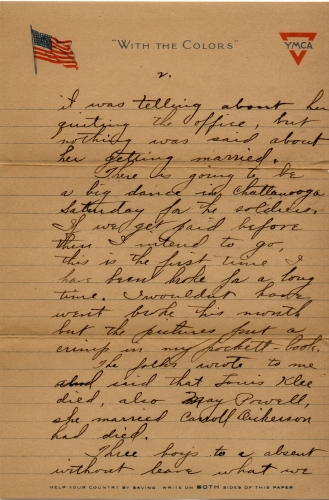 "WITH THE COLORS"
YMCA
2.
I was telling about her
quiting the office, but
nothing was said about
her getting married.
There is going to be
a big dance in Chattanooga
Saturday for the soldiers
If we get paid before
then I intend to go,
this is the first time I
have been broke for a long
time. I wouldnt have
went broke this month
but the pictures put a
crimp in my pockett-book.
The folks wrote to me
and said that Louis Klee
died, also May Powell,
she married Carroll Dickerson
had died.
Three boys to a absent
without leave what we
HELP YOUR COUNTRY BY SAVING. WRITE ON BOTH SIDES OF THIS PAPER